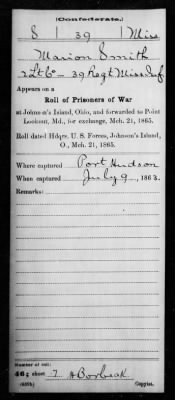 (Confederate.)
S | 39 | Miss
Marion Smith
2 Lt Co — 39 Regt Miss Inf
Appears on a
Roll of Prisoners of War
at Johnson's Island, Ohio, and forwarded to Point
Lookout, Md., for exchange, Mch. 21, 1865.
Roll dated Hdqrs. U. S. Forces, Johnson's Island,
O., Mch. 21, 1865.
Where captured Port Hudson
When captured July 9, 1863.
Remarks:
Number of roll:
sheet 7
Copyist.